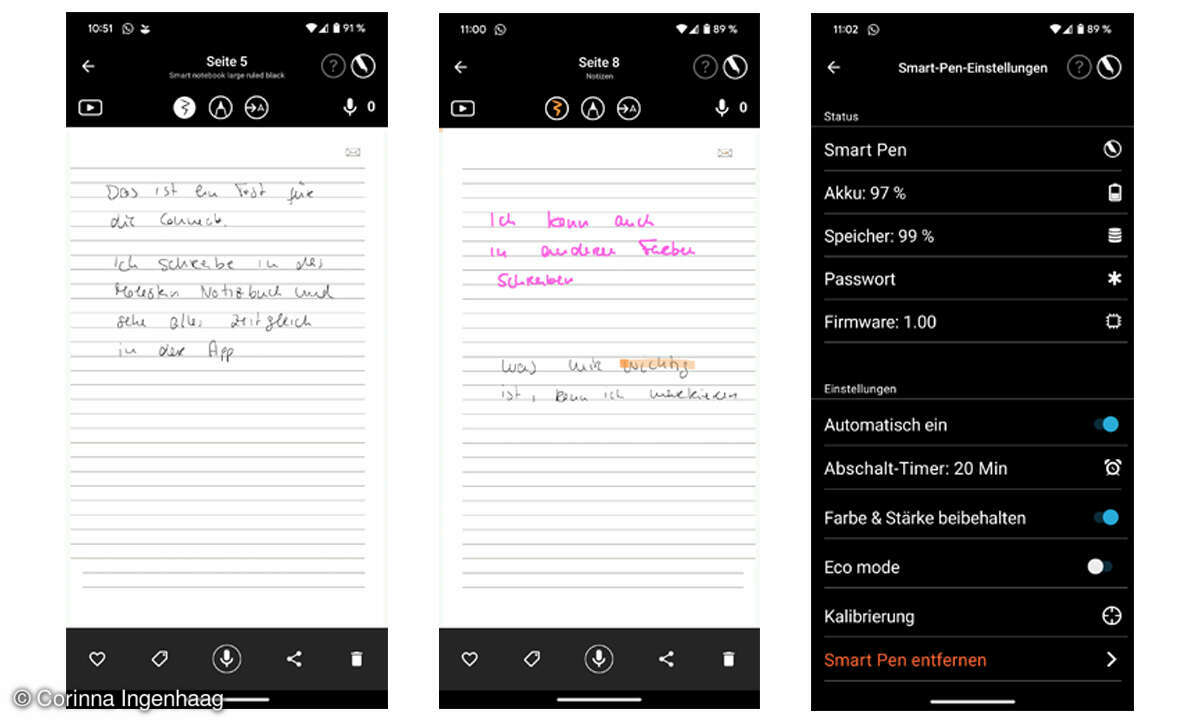 10:51
91 %
Seite 5
Smart notebook large ruled black
?
A
0
Das ist ein Test für
die Conneck.
Ich schreibe in das
Moleskin Notizbuch und
sehe alles zeitgleich
in der App
11:00
89 %
Seite 8
Notizen
?
A
0
Ich kann auch
in anderen Farben
Schreiben
Was mir wichtig
ist, kann ich markieren
11:02
89 %
Smart-Pen-Einstellungen
?
Status
Smart Pen
Akku: 97 %
Speicher: 99 %
Passwort
Firmware: 1.00
Einstellungen
Automatisch ein
Abschalt-Timer: 20 Min
Farbe & Stärke beibehalten
Eco mode
Kalibrierung
Smart Pen entfernen
© Corinna Ingenhaag